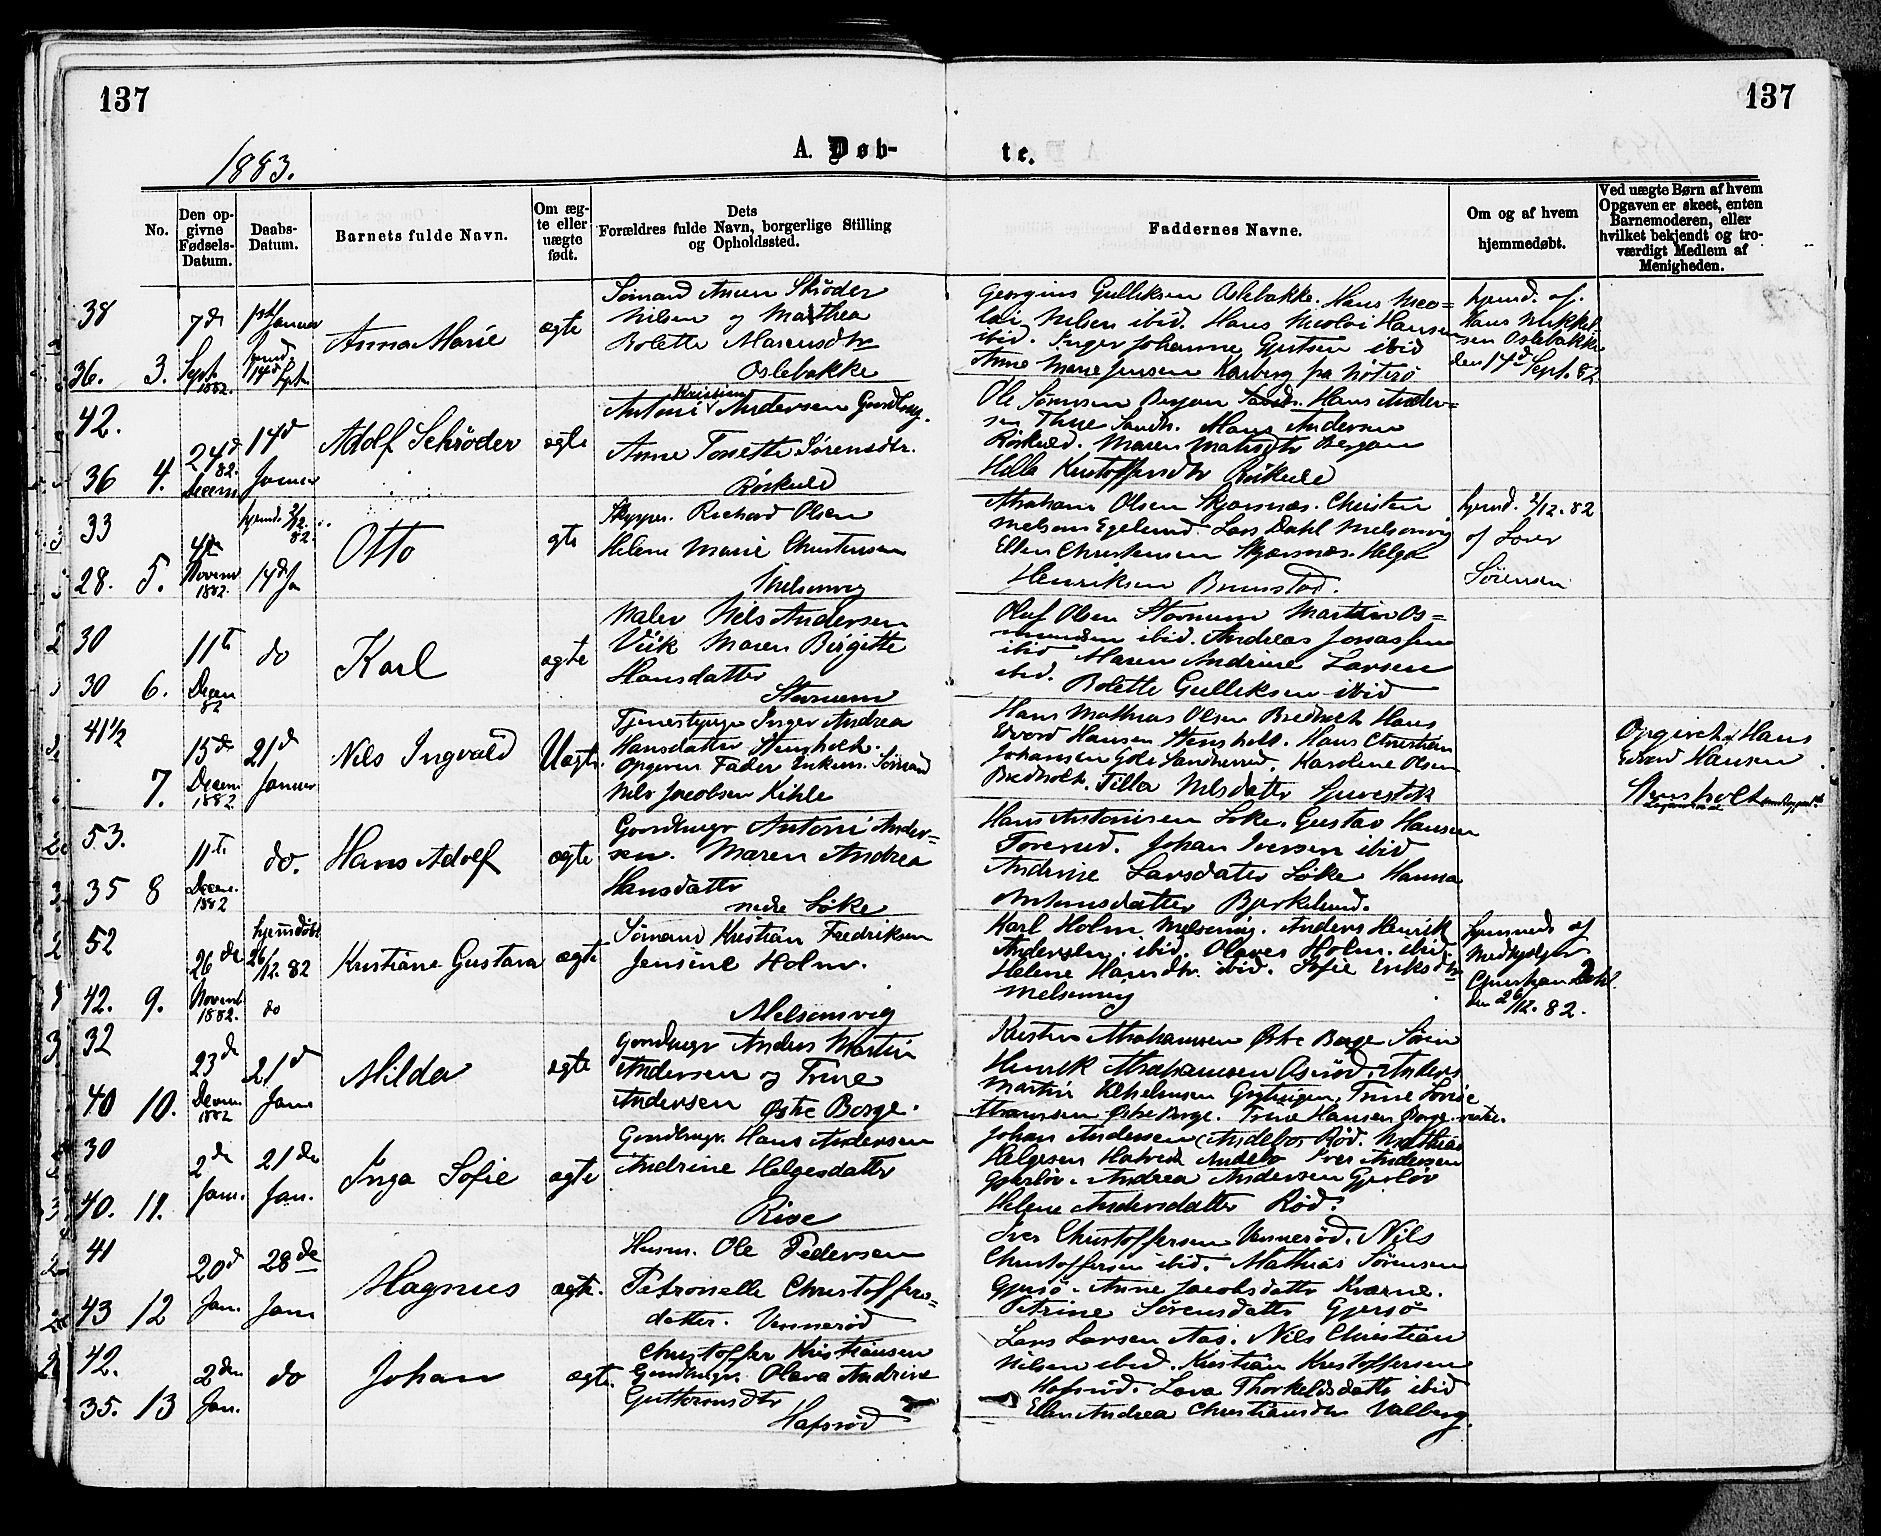 137
137
A. Døb-
te.
1883.
No.
Den op-
givne
Fødsels-
Datum.
Daabs-
Datum.
Barnets fulde Navn.
Om æg-
te eller
uægte
født.
Dets
Forældres fulde Navn, borgerlige Stilling
og Opholdssted.
Faddernes Navne.
Om og af hvem
hjemmedøbt.
Ved uægte Børn af hvem
Opgaven er skeet, enten
Barnemoderen, eller
hvilket bekjendt og tro-
værdigt Medlem af
Menigheden.
38
36. 3.
7de
Sept.
1882.
Januar
14de Sept.
Anna Marie
ægte
Sømand Schrøder
Nilsen og Mathea
Bolette
Oslebakke
Georgius Gulliksen Oslebakke. Hans Nico-
lai Nilsen ibid. Hans Nicolai Hansen
ibid. Inger Johanne ibid
Anne Marie Jensen Karberg paa Nøterø
hjemd. af
Hans Mikkel-
sen Oslebakke
den 14de Sept. 82
42.
36 4.
24d
82.
Decem
14d
Januar
Adolf Schrøder
ægte
Antoni Kristian Andersen Gaardbrug.
Anne Tonette Sørensdtr.
Røskuld
Ole Sørensen Bergan Hans Ander-
sen Thue Sandh. Hans Andersen
Røskuld. Maren Bergan
Helle Kristoffersdtr Røskuld
33
28. 5.
4de
Novem
1882.
hjemd. 3/12
82.
14d Ja
Otto
ægte
Skipper. Richard Olsen
Helene Marie Christensen
Melsomvig
Abraham Olsen Skjærsnæs. Christen
Nelson Egelund. Lars Dahl Melsomvig
Ellen Christensen Skjærsnæs. Helga
Henriksen Brunstad.
hjemd. 3/12. 82
af Lover
Sörensen
30
30 6.
11te
Decem
82
do
Karl
ægte
Maler Nels Andersen
Viik Maren Birgitte
Hansdatter
Storum
Oluf Olsen Storum Martin As-
mundsen ibid. Andreas Jonassen
ibid Maren Andrine Larsen
ibid. Bolette Gulliksen ibid
41 1/2
7.
15de
Decem
1882
21d
Januar
Nils Ingvald
Uægte
Tjenestepige Inger Andrea
Hansdatter Stensholt.
Opgiven Fader Enkem. Sømand
Nils Jacobsen Kihle
Hans Mathias Olsen Bredholt Hans
Edvard Hansen Stensholt. Hans Christian
Johansen Sandherred. Karoline Olsen
Bredholt. Tilla Nilsdatter
Opgivet af Hans
Edvard Hansen
Stensholt
53.
35 8
11te
Decem.
1882
do.
Hans Adolf
ægte
Gaardbruger Antoni Ander-
sen. Maren Andrea
Hansdatter
nedre Løke
Hans Antonisen Løke. Gustav Hansen
Torerud. Johan Iversen ibid
Andrine Larsdatter Løke Hanna
Antonisdatter Bjerkelund.
52
42. 9.
26de
Novemb
1882.
hjemdøbt
26/12 82
do
Kristiane Gustava
ægte
Sømand Kristian Fredriksen
Jensine Holm.
Melsomvig
Karl Holm Melsomvig. Anders Henrik
Andersen. ibid. Olaves Holm. ibid.
Helene Hansdtr. ibid. Sofie Eriksdtr
Melsomvig
hjemmed. af
Christian Dahl
den 26/12. 82.
32
40 10.
23de
Decem
1882
21d
Jan.
Milda
ægte
Gaardbruger Anders Martin
Andersen og Trine
Andersen Østre Borge.
Kristen Abrahamsen Østre Borge Søren
Henrik Abrahamsen Aasrød. Anders
Martin Gryttingen. Trine Lovise
Østre Borge. Trine Hansen Borge
30
40. 11.
2de
Jan.
21de
Jan.
Inga Sofie
ægte
Gaardbruger. Hans Andersen
Andrine Helgesdatter
Rise
Johan Andersen (Andebo Rød. Mathias
Helgesen Andebo Iver Andersen
Andrea Andersen Gjerløv
Helene Andersdatter Rød.
41
43 12
20d
Jan
28de
Jan
Magnus
ægte.
Husm. Ole Pedersen
Petronelle Christoffers-
datter. Vennerød
Iver Christoffersen Vennerød. Nils
Christoffersen ibid. Mathias Sørensen
Gjersø. Anne Jacobsdatter Kværne.
Petrine Sørensdatter Gjersø
42.
35. 13
2den
Jan.
do
Johan
ægte.
Christoffer Kristiansen
Gaardbruger. Olava Andrine
Guttormsdtr
Hafsrød
Lars Larsen Aas. Nils Christian
Nilsen ibid. Kristian Kristoffersen
Hafsrød. Lava Thorkildsdatter ibid
Ellen Andrea Christiansdtr Valberg.